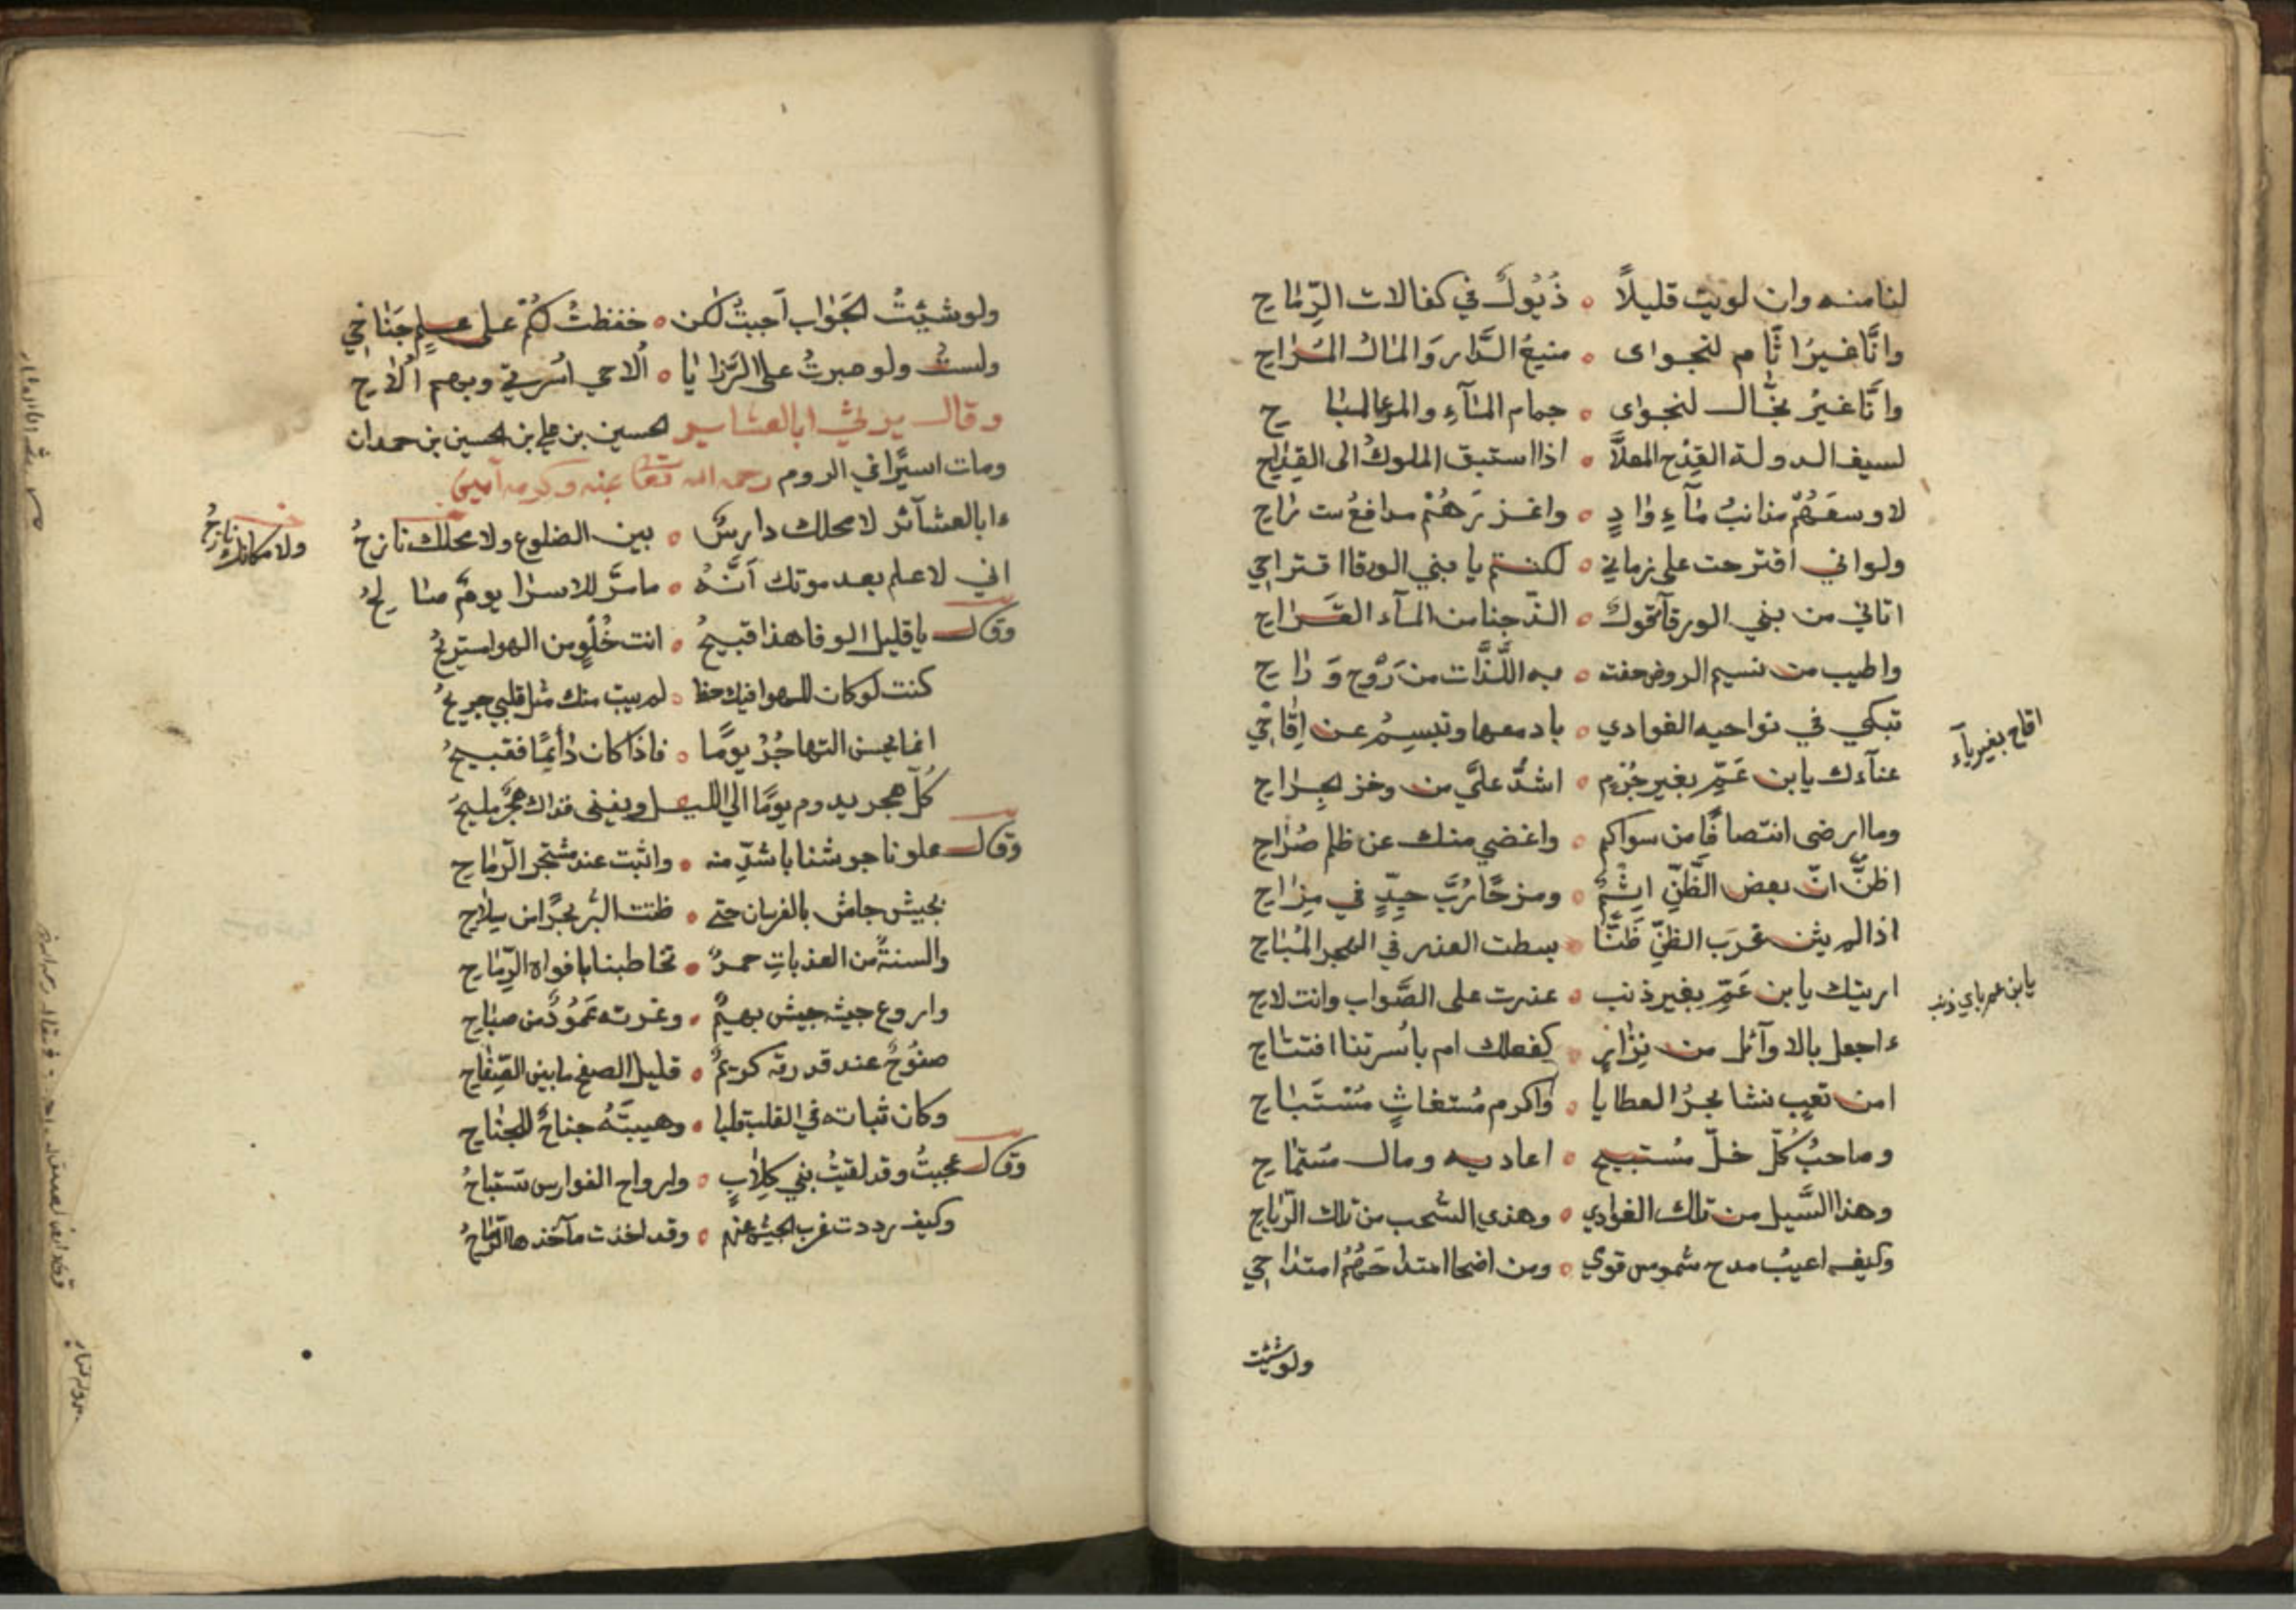 لنا منه وان لويت قليلاً ه ديون في كفالات الرِّمَاحِ
وانَّا غيرُ اثّام لنجوى ه منيعُ الدَّار وَالمَال المُرَاح
وانَّا غيرُ بخّال لنجوى ه جمام المآءِ والمرعى المبا ح
لسيف الدولة القِدْح المعلاَّ ه اذا استبق الملوكُ الى القِدَاح
لاوسعَهُمْ مذانبُ مَآءِ وَادٍ ه واغزرَهُمْ مدافعُ ت رَاح
ولو اني اقترحت على زماني ه لكنتم يا بني الورقا اقتراحي
اتاني من بني الورقآ قول ه الذّ جنا من المآء القَرَاح
واطيب من نسيم الروض حفت ه به اللَّذَّات من رَوْحٍ وَ رَاح
تبكي في نواحيه الغوادي ه بادمعها وتبسِمُ عن اِقَاحي
اقاح بغير يآء
عتآءك يا بن عَمّ بغير جُرْم ه اشدُّ عليَّ من وخز الجِرَاح
وما ارضى انتصافًا من سواكم ه واغضي منك عن ظلم صُرَاح
اظنُّ انّ بعض الظَّنّ اِثْمٌ ه ومزحًا رُبَّ جِدٍّ في مِزَاح
اذا لم يثن غَرَب الظنّ ظَنًّا ه بسطت العذر في الهجر المُبَاح
اريتك يا بن عَمّ بغير ذنب ه عذرت على الصَّواب وانت لاح
يا بن عم باي ذنب
ءاجعل بالاوآئل من نِزَارٍ ه كفعلك ام باُسرتنا افتتاح
امن تعب نشا بحرُ العطايا ه واكرم مُستغاثٍ مُسْتَبَاح
وصاحبُ كُلّ خلّ مُستبيح ه اعاديه ومال مُستمَاح
وهذا السَّيل من تلك الغوادي ه وهذي السُّحب من تلك الرّيَاح
وكيف اعيبُ مدح شموس قومي ه ومن اضحا امتداحَهُمُ امتدَاحي
ولو شئت
ولو شئتُ الجَوَاب اَجبتُ لكن ه خفظتُ لكُمْ على علم جَنَاحي
ولستُ ولو صبرتُ على الرَّزَايَا ه اُلاحي اُسرتي وبهم اُلاَح
وقال يرثي ابا العشاير الحسين بن علي بن الحسين بن حمدان
ومات اسيرًا في الروم رحمه الله تعالى عنه وكرمه آمين
ءابا العشآئر لا محلك دارسٌ ه بين الضلوع ولا محلك نازحُ
ولا مكانك نازحُ
اني لاعلم بعد موتك اَنَّهُ ه ما مرَّ للاسرَا يومٌ صا لحُ
وقال يا قليل الوفا هذا قبيحُ ه انت خُلْوٌ من الهوا مستريحُ
كنت لو كان للهوا فيك حظا ه لم يبيت منك مثل قلبي جريحُ
انما يحسن التهاجُرُ يومًا ه فاذا كان دَائِمًا فقبيحُ
كُلّ هجر يدوم يومًا الى الليل ويفنى فذاك هجرٌ مليحُ
وقال علونا جوشنا باشدِّ منه ه واثبت عند مشتجر الرّمَاح
بجيش جاش بالفرسان حتى ه ظننت البرّ بحرًا من سِلاَح
والسنةٌ من العذباتِ حمرٌ ه تخاطبنا بافواه الرِّمَاح
واروع جيشه جيش بهيمٌ ه وغرته عَمُودٌ من صبَاح
صفوُحٌ عند قدرته كريمٌ ه قليل الصفح ما بين الصِّفَاح
وكان ثباته في القلب قلبا ه وهيبتُهُ جناحٌ للجنَاح
وقال عجبتُ وقد لقيتُ بني كِلاَبٍ ه وارواح الفوارس تستباحُ
وكيف رددت غرب الجيش عنهم ه وقد اخذت مآخذها الرّمَاحُ